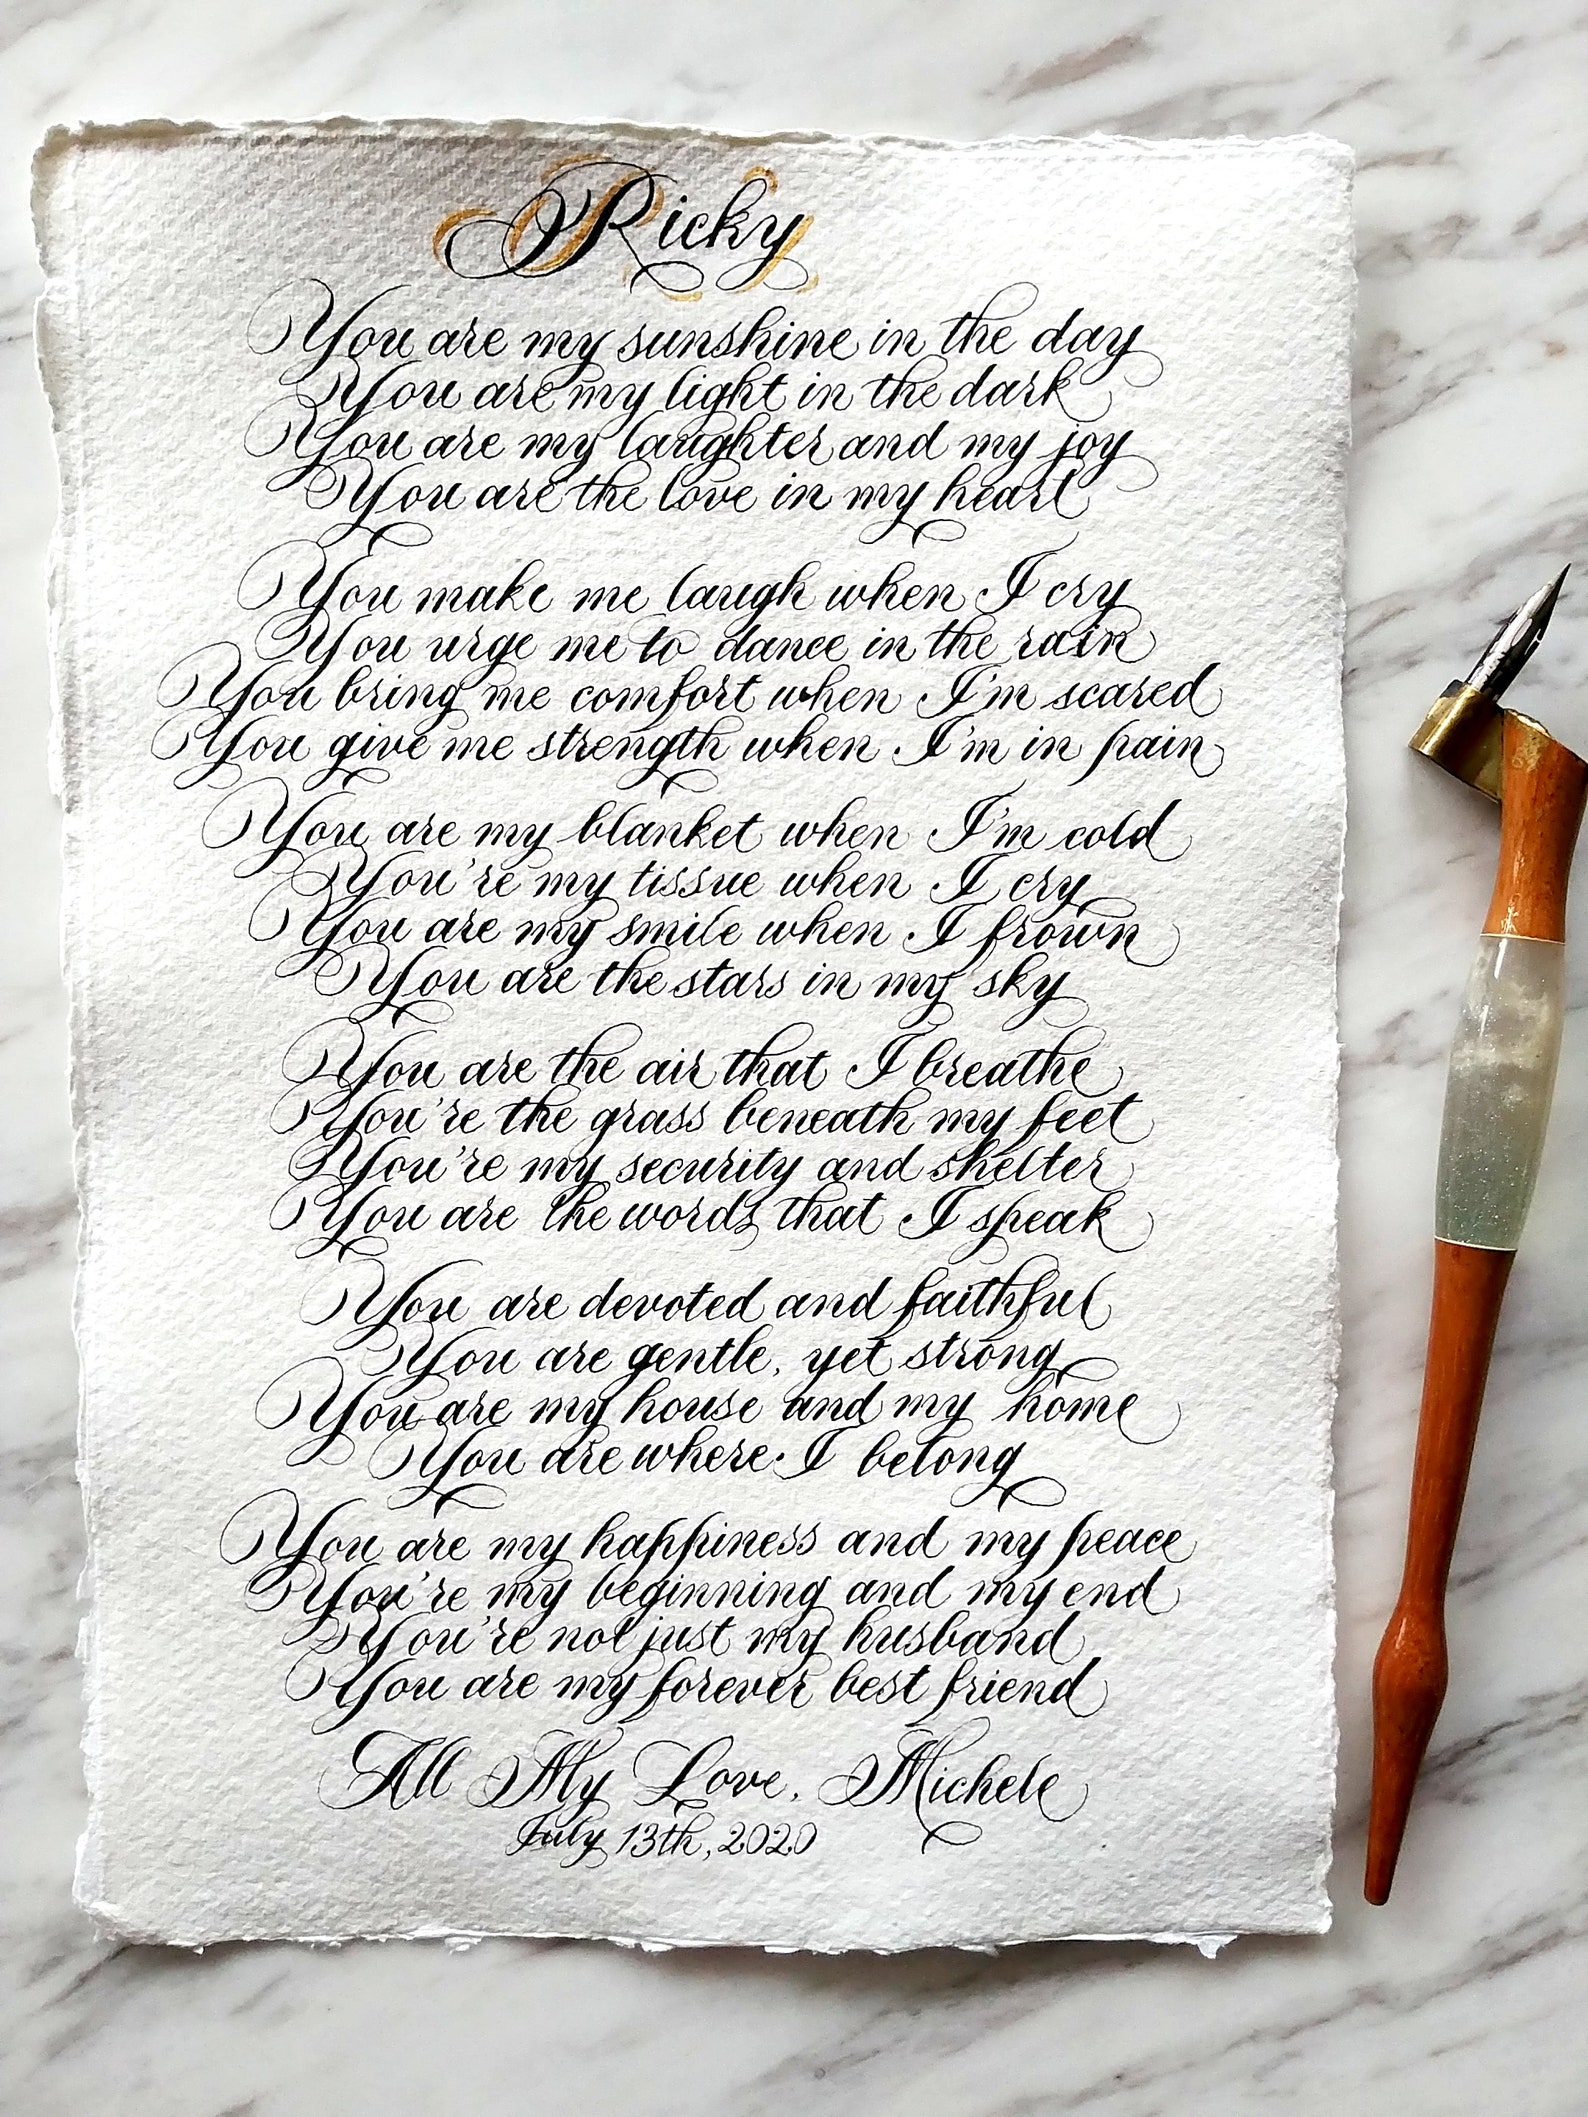 Ricky
You are my sunshine in the day
You are my light in the dark
You are my laughter and my joy
You are the love in my heart
You make me laugh when I cry
You urge me to dance in the rain
You bring me comfort when I'm scared
You give me strength when I'm in pain
You are my blanket when I'm cold
You're my tissue when I cry
You are my smile when I frown
You are the stars in my sky
You are the air that I breathe
You're the grass beneath my feet
You're my security and shelter
You are the words that I speak
You are devoted and faithful
You are gentle, yet strong
You are my house and my home
You are where I belong
You are my happiness and my peace
You're my beginning and my end
You're not just my husband
You are my forever best friend
All My Love, Michele
July 13th, 2020